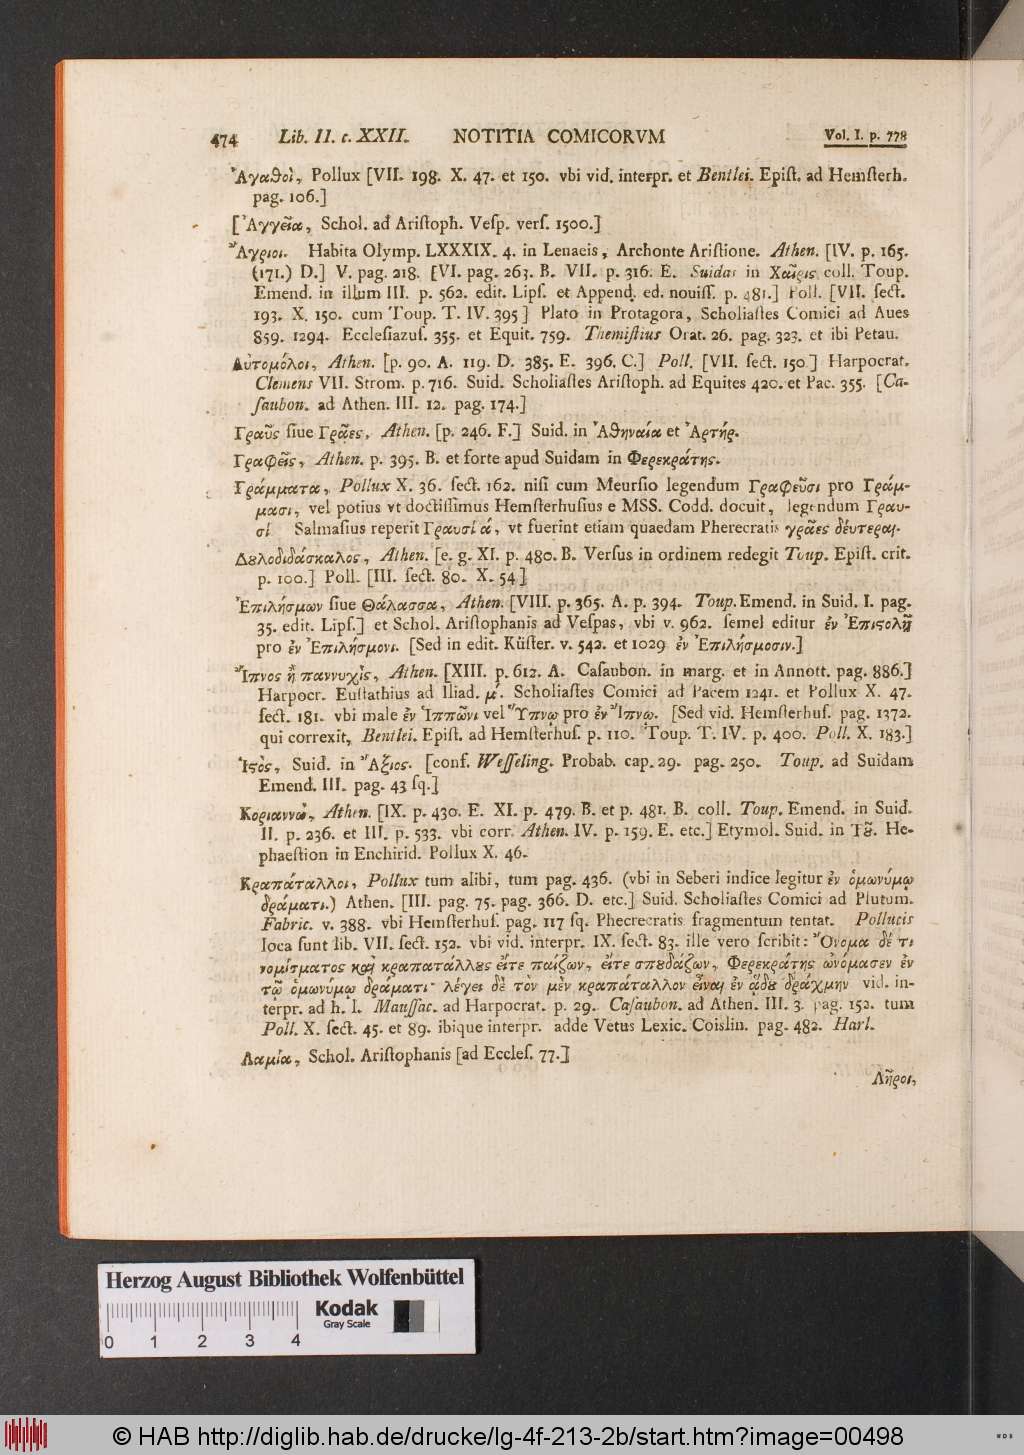 474 Lib. II. c. XXII. NOTITIA COMICORVM Vol. I. p. 778
Ἀγαθοὶ, Pollux [VII. 198. X. 47. et 150. vbi vid. interpr. et Bentlei. Epiſt. ad Hemſterh.
pag. 106.]
[Ἀγγεῖα, Schol. ad Ariſtoph. Veſp. verſ. 1500.]
Ἄγριοι. Habita Olymp. LXXXIX. 4. in Lenaeis, Archonte Ariſtione. Athen. [IV. p. 165.
(171.) D.] V. pag. 218. [VI. pag. 263. B. VII. p. 316. E. Suidas in Χαῖρις coll. Toup.
Emend. in illum III. p. 562. edit. Lipſ. et Append. ed. nouiſſ. p. 481.] Poll. [VII. ſect.
193. X. 150. cum Toup. T. IV. 395] Plato in Protagora, Scholiaſtes Comici ad Aues
859. 1294. Eccleſiazuſ. 355. et Equit. 759. Themiſtius Orat. 26. pag. 323. et ibi Petau.
Αὐτομόλοι, Athen. [p. 90. A. 119. D. 385. E. 396. C.] Poll. [VII. ſect. 150] Harpocrat.
Clemens VII. Strom. p. 716. Suid. Scholiaſtes Ariſtoph. ad Equites 420. et Pac. 355. [Ca-
ſaubon. ad Athen. III. 12. pag. 174.]
Γραῦς ſiue Γρᾶες, Athen. [p. 246. F.] Suid. in Ἀθηναία et Ἀρτήρ.
Γραφεῖς, Athen. p. 395. B. et forte apud Suidam in Φερεκράτης.
Γράμματα, Pollux X. 36. ſect. 162. niſi cum Meurſio legendum Γραφεῦσι pro Γράμ-
μασι, vel potius vt doctiſſimus Hemſterhuſius e MSS. Codd. docuit, legendum Γραυ-
σί Salmaſius reperit Γραυσί ά, vt fuerint etiam quaedam Pherecratis γρᾶες δέυτεραι.
Δȣλοδιδάσκαλος, Athen. [e. g. XI. p. 480. B. Verſus in ordinem redegit Toup. Epiſt. crit.
p. 100.] Poll. [III. ſect. 80. X. 54]
Ἐπιλήσμων ſiue Θάλασσα, Athen. [VIII. p. 365. A. p. 394. Toup. Emend. in Suid. I. pag.
35. edit. Lipſ.] et Schol. Ariſtophanis ad Veſpas, vbi v. 962. ſemel editur ἐν Ἐπιϛολῇ
pro ἐν Ἐπιλήσμονι. [Sed in edit. Küſter. v. 542. et 1029 ἐν Ἐπιλήσμοσιν.]
Ἵπνος ἢ παννυχὶς, Athen. [XIII. p. 612. A. Caſaubon. in marg. et in Annott. pag. 886.]
Harpocr. Euſtathius ad Iliad. μ΄. Scholiaſtes Comici ad Pacem 1241. et Pollux X. 47.
ſect. 181. vbi male ἐν Ἱππῶνι vel Ὕπνῳ pro ἐν Ἴπνῳ. [Sed vid. Hemſterhuſ. pag. 1372.
qui correxit, Bentlei. Epiſt. ad Hemſterhuſ. p. 110. Toup. T. IV. p. 400. Poll. X. 183.]
Ἰϛὸς, Suid. in Ἄξιος. [conf. Weſſeling. Probab. cap. 29. pag. 250. Toup. ad Suidam
Emend. III. pag. 43 ſq.]
Κοριαννὼ, Athen. [IX. p. 430. E. XI. p. 479. B. et p. 481. B. coll. Toup. Emend. in Suid.
II. p. 236. et III. p. 533. vbi corr. Athen. IV. p. 159. E. etc.] Etymol. Suid. in Τȣ͂. He-
phaeſtion in Enchirid. Pollux X. 46.
Κραπάταλλοι, Pollux tum alibi, tum pag. 436. (vbi in Seberi indice legitur ἐν ὁμωνύμῳ
δράματι.) Athen. [III. pag. 75. pag. 366. D. etc.] Suid. Scholiaſtes Comici ad Plutum.
Fabric. v. 388. vbi Hemſterhuſ. pag. 117 ſq. Phecrecratis fragmentum tentat. Pollucis
loca ſunt lib. VII. ſect. 152. vbi vid. interpr. IX. ſect. 83. ille vero ſcribit: Ὄνομα δέ τι
νομίσματος καὶ κραπατάλλȣς εἴτε παίζων, εἴτε σπȣδάζων, Φερεκράτης ὠνόμασεν ἐν
τῷ ὁμωνύμῳ δράματι· λέγει δὲ τὸν μὲν κραπάταλλον εἶναι ἐν ᾅδȣ δράχμην vid. in-
terpr. ad h. l. Mauſſac. ad Harpocrat. p. 29. Caſaubon. ad Athen. III. 3. pag. 152. tum
Poll. X. ſect. 45. et 89. ibique interpr. adde Vetus Lexic. Coislin. pag. 482. Harl.
Λαμία, Schol. Ariſtophanis [ad Eccleſ. 77.]
Λῆροι,
Herzog August Bibliothek Wolfenbüttel
Kodak
Gray Scale
0 1 2 3 4
© HAB http://diglib.hab.de/drucke/lg-4f-213-2b/start.htm?image=00498